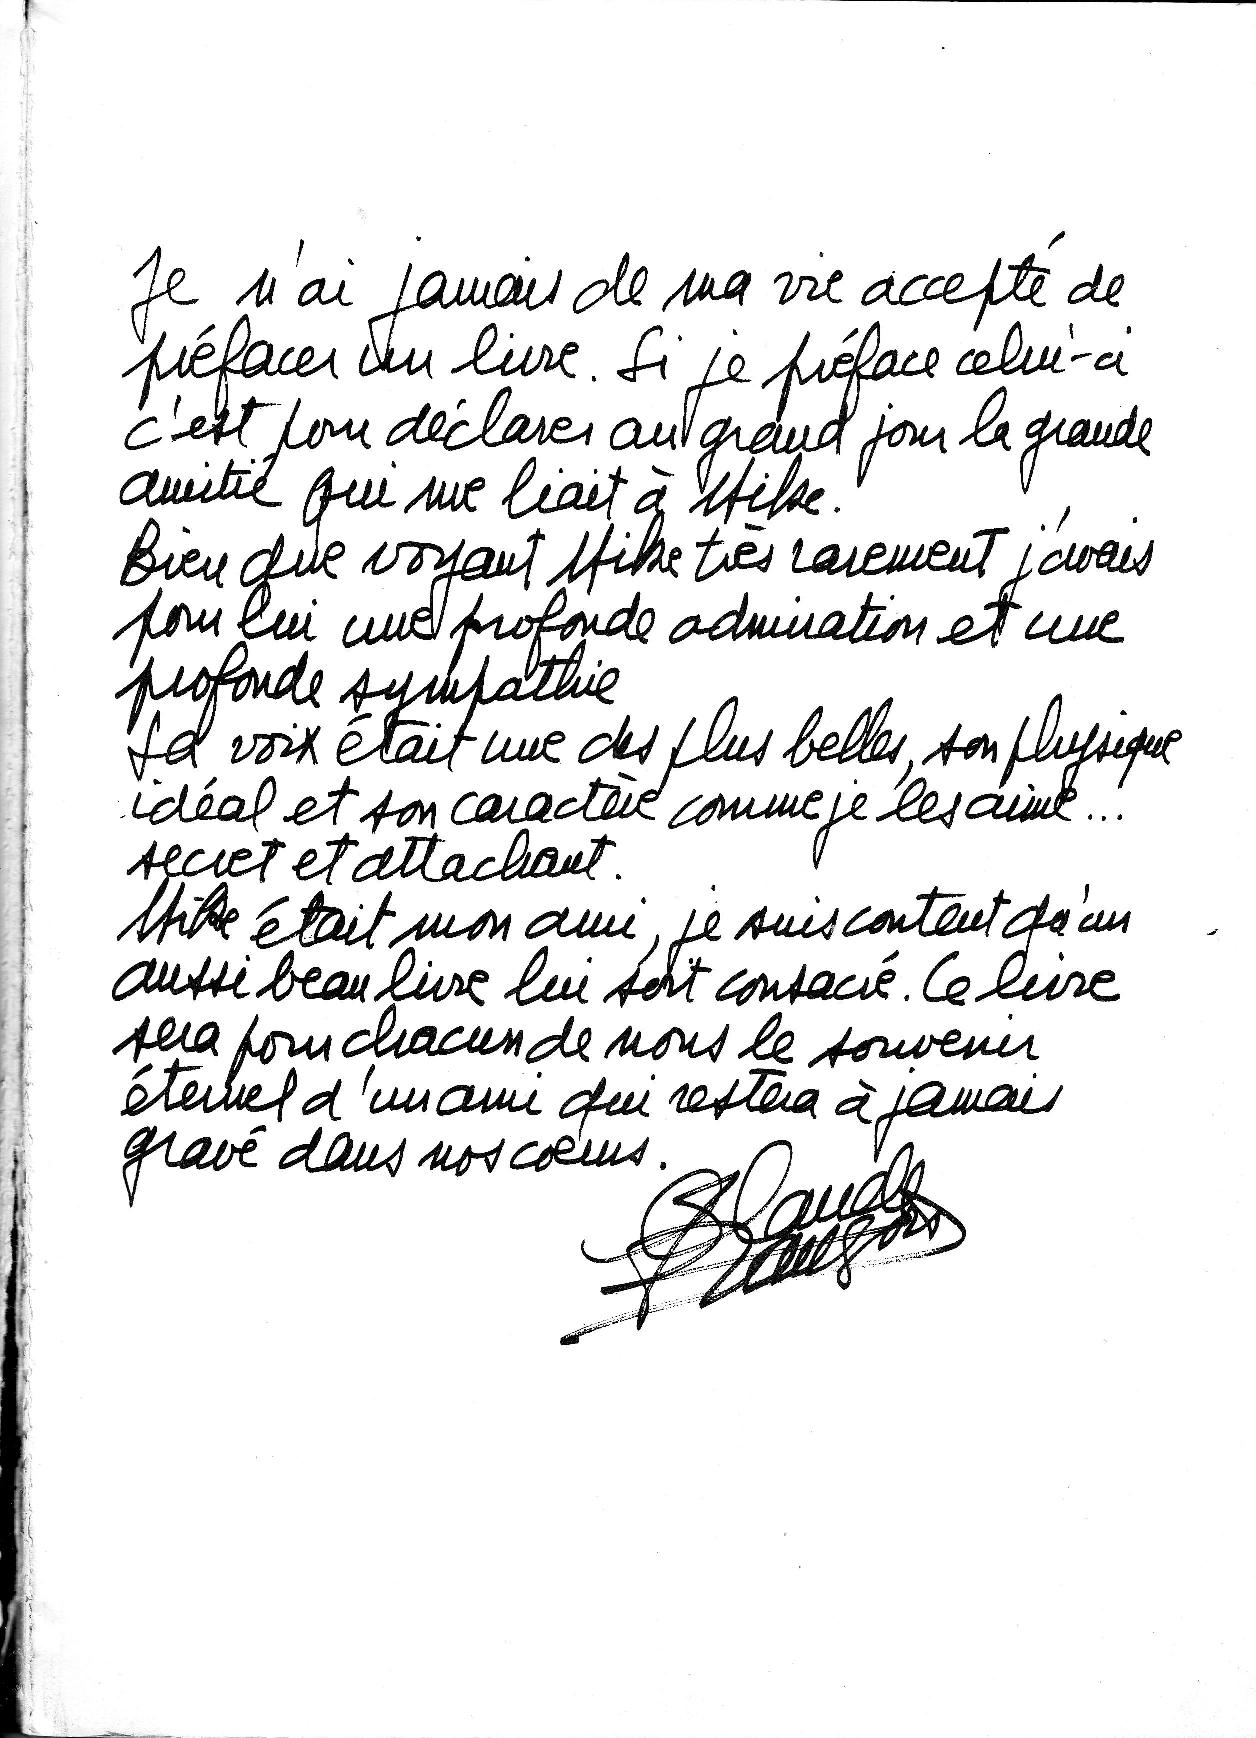 Je n'ai jamais de ma vie accepté de
préfacer un livre. Si je préface celui-ci
c'est pour déclarer au grand jour la grande
amitié qui me liait à Mike.
Bien que voyant Mike très rarement j'avais
pour lui une profonde admiration et une
profonde sympathie
Sa voix était une des plus belles, son physique
idéal et son caractère comme je les aime...
secret et attachant.
Mike était mon ami, je suis content qu'un
aussi beau livre lui soit consacré. Ce livre
sera pour chacun de nous le souvenir
éternel d'un ami qui restera à jamais
gravé dans nos coeurs.
Claude
François